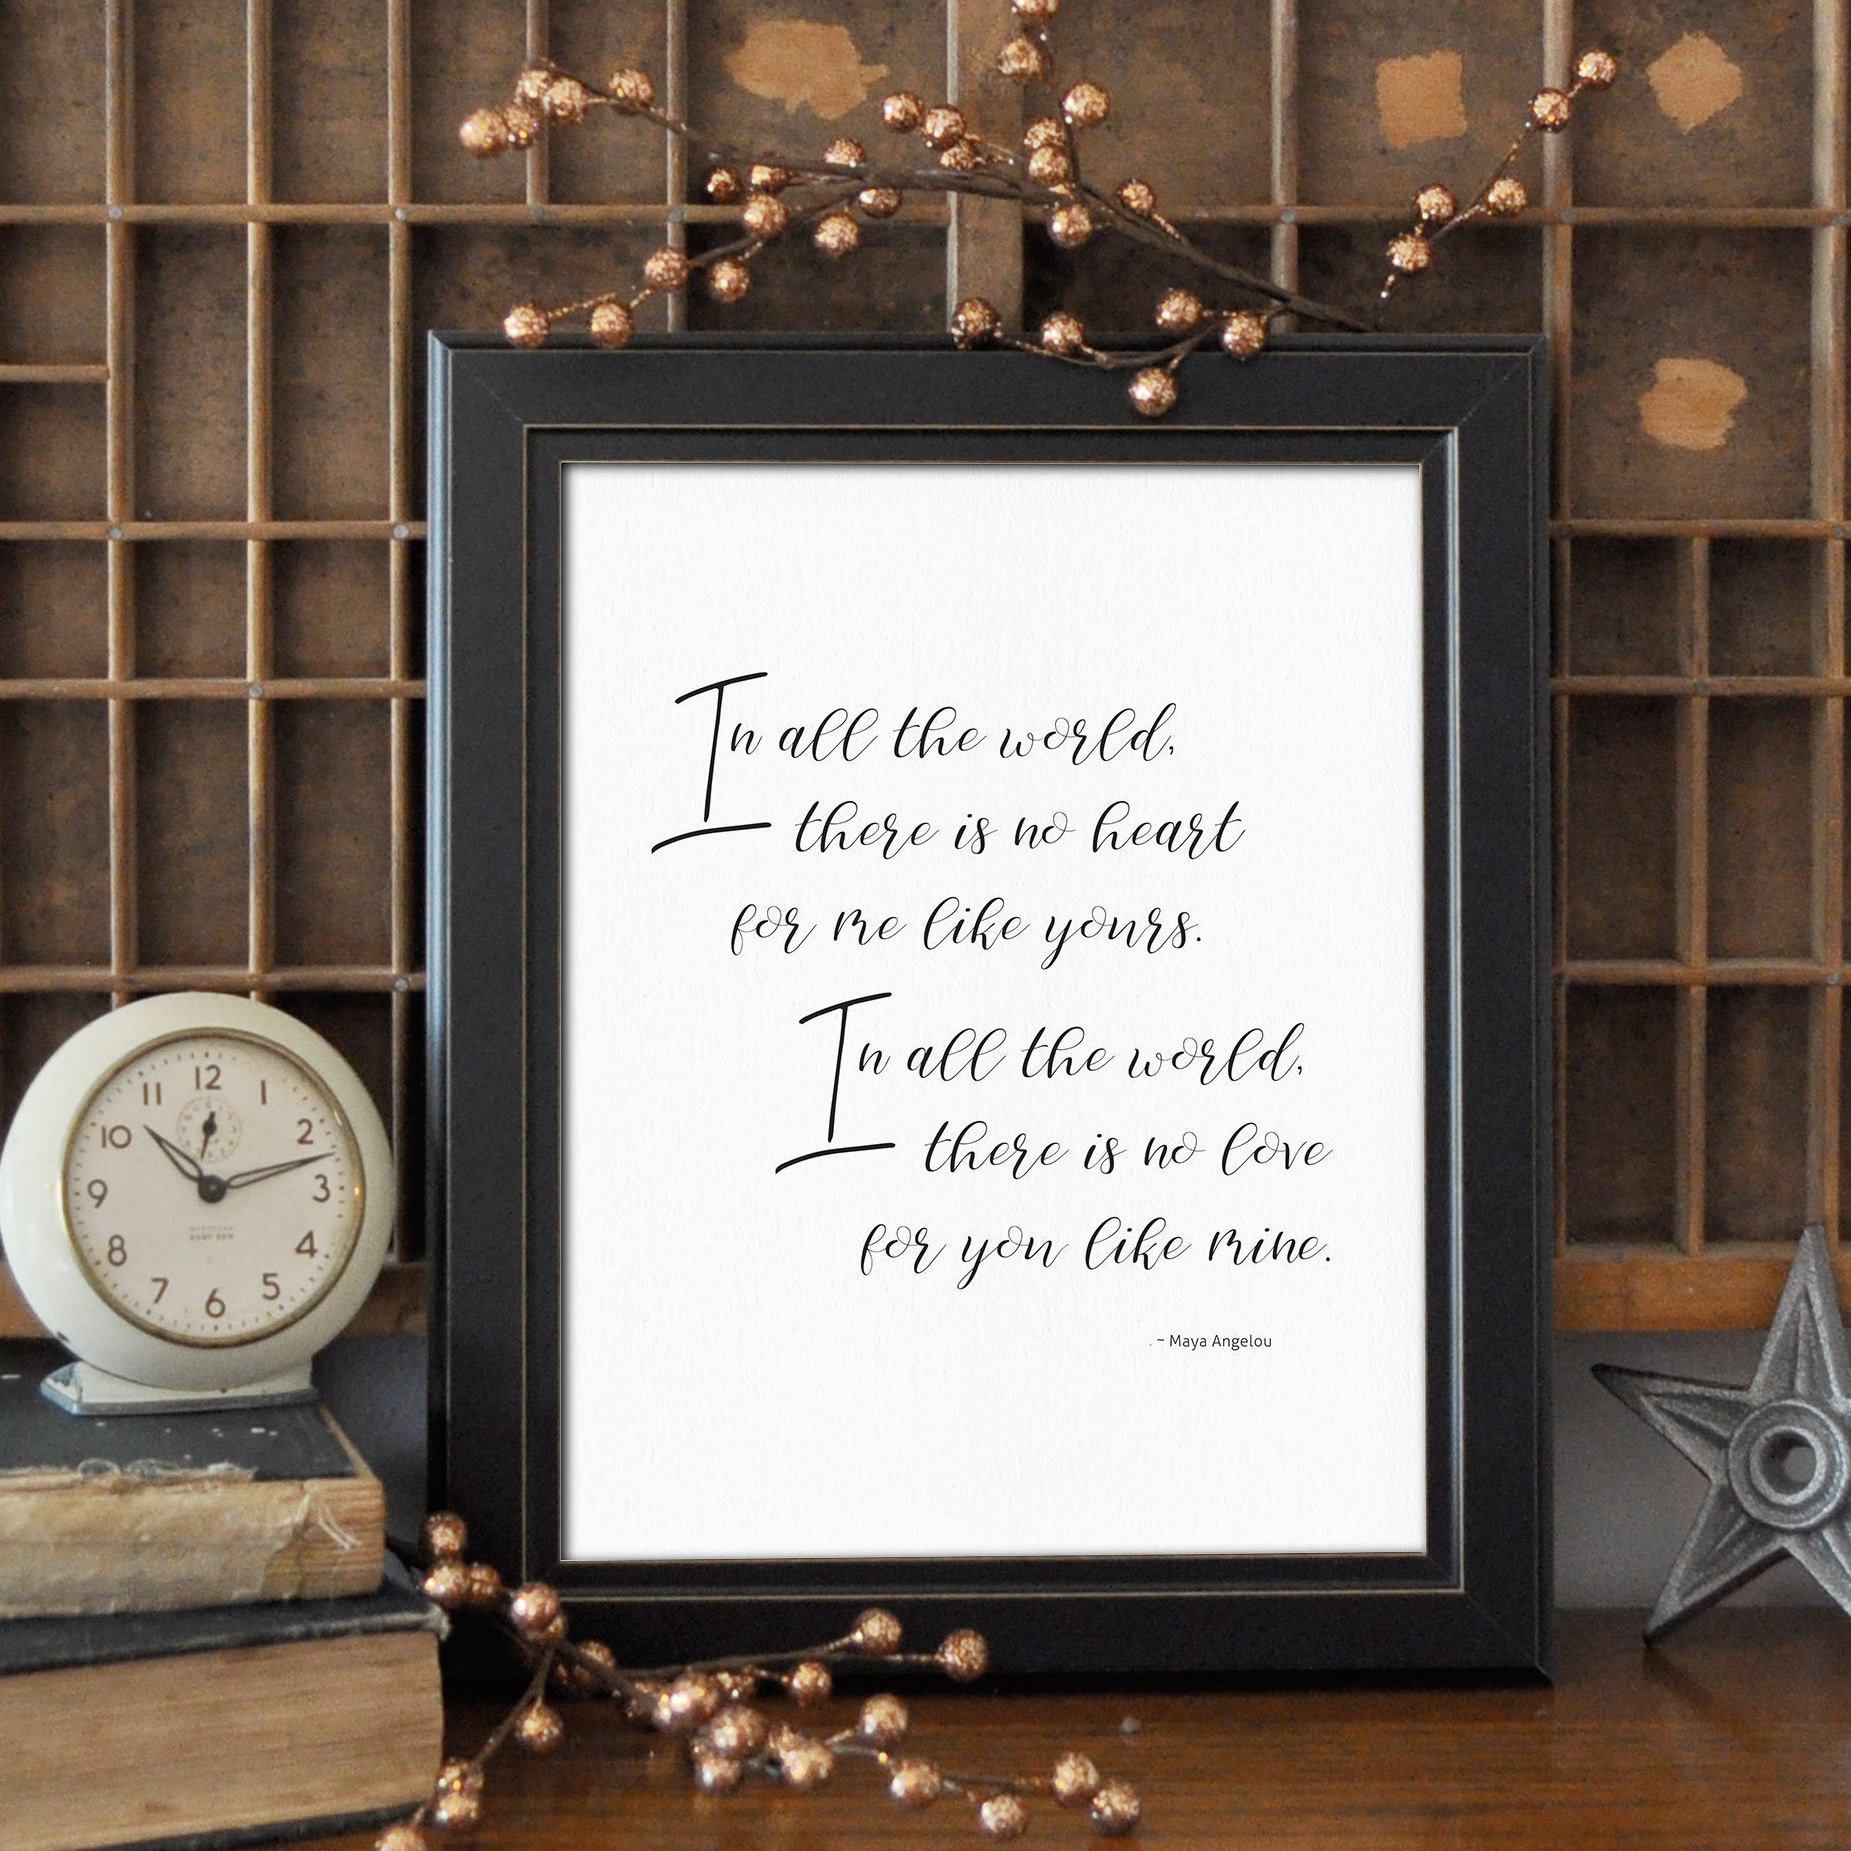 In all the world,
there is no heart
for me like yours.
In all the world,
there is no love
for you like mine.
~ Maya Angelou
12
1
2
3
4
5
6
7
8
9
10
11
BABY BEN